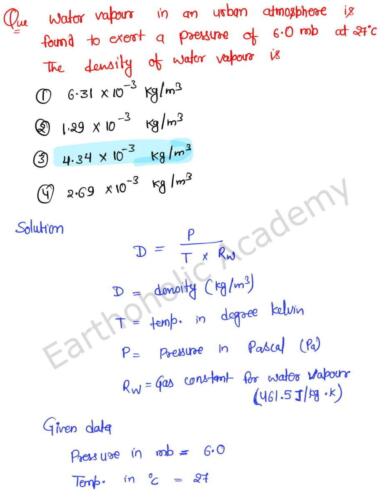 Que Water vapour in an urban atmosphere is
found to exert a pressure of 6.0 mb at 27°C
The density of water vapour is
① 6.31 × 10⁻³ kg/m³
② 1.29 × 10⁻³ kg/m³
③ 4.34 × 10⁻³ kg/m³
④ 2.69 × 10⁻³ kg/m³
Solution
D = P / T × Rw
D = density (kg/m³)
T = temp. in degree kelvin
P = Pressure in Pascal (Pa)
Rw = Gas constant for water vapour
(461.5 J/kg·K)
Given data
Pressure in mb = 6.0
Temp. in °C = 27
Earthoholic Academy